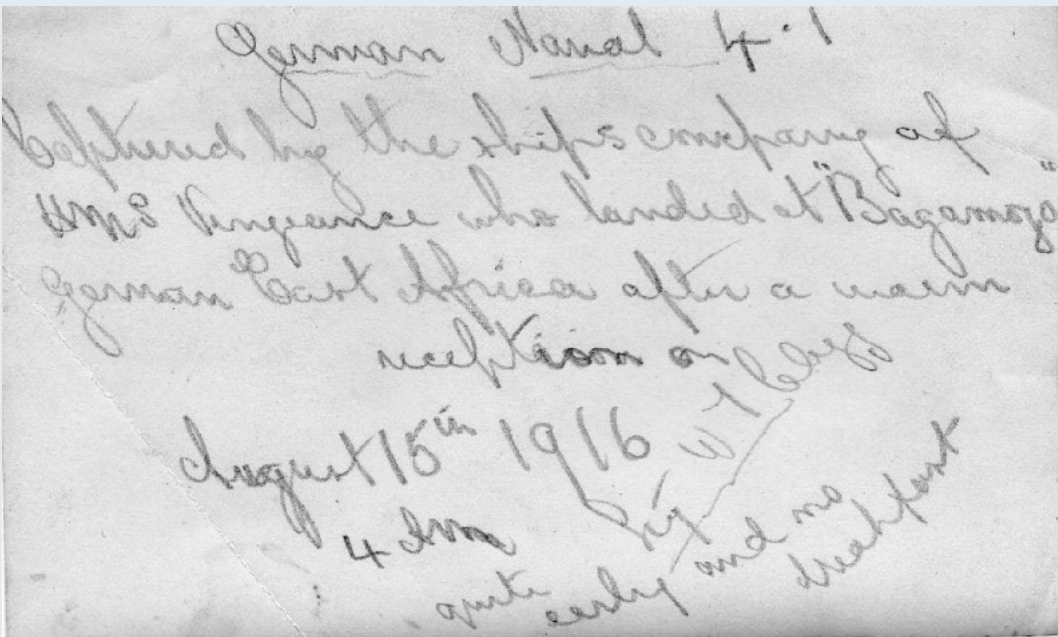 German Naval 4.1
Captured by the ships company of
HMS Vengeance who landed at "Bagamoyo"
German East Africa after a warm
reception on
August 15th 1916
4 Am
quite early and no
breakfast
Sig W T